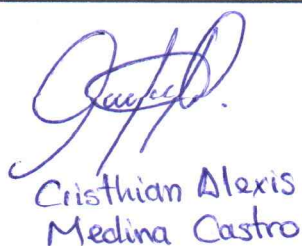 Cristhian Alexis
Medina Castro